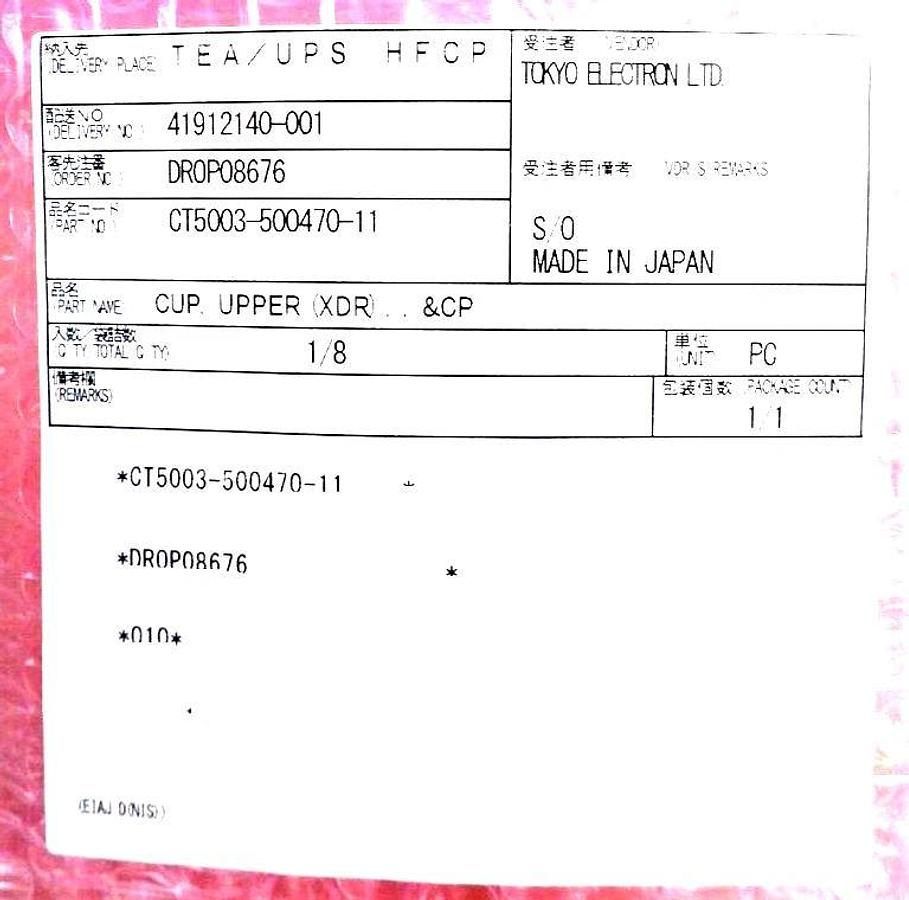 納入先
(DELIVERY PLACE)
TEA/UPS HFCP
受注者 (VENDOR)
TOKYO ELECTRON LTD.
配送NO
(DELIVERY NO.)
41912140-001
客先注番
(ORDER NO.)
DR0P08676
受注者用備考 VDR'S REMARKS
品名コード
(PART NO.)
CT5003-500470-11
S/O
MADE IN JAPAN
品名
(PART NAME)
CUP, UPPER (XDR)... &CP
入数/総数
(Q'TY/TOTAL Q'TY)
1/8
単位
(UNIT)
PC
備考欄
(REMARKS)
包装個数 (PACKAGE COUNT)
1/1
*CT5003-500470-11 *
*DR0P08676 *
*010*